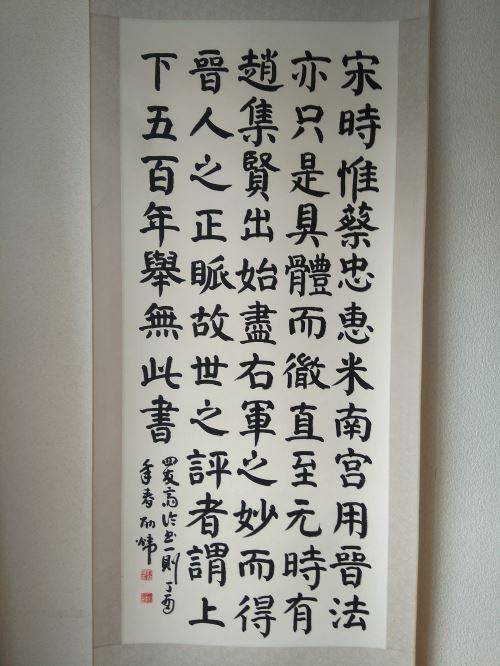 宋時惟蔡忠惠米南宮用晉法
亦只是具體而徹直至元時有
趙集賢出始盡右軍之妙而得
晉人之正脈故世之評者謂上
下五百年舉無此書
四友齋論書一則丁酉
年春